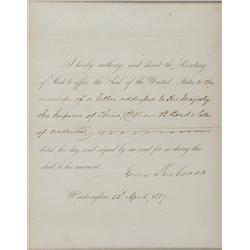 I hereby authorize and direct the Secretary
of State to affix the Seal of the United States to the
envelope of a letter addressed to His Majesty
the Emperor of China, (William B. Reed's letter
of credence)
dated this day, and signed by me and for so doing this
shall be his warrant.
James Buchanan
Washington, 22d April, 1857.